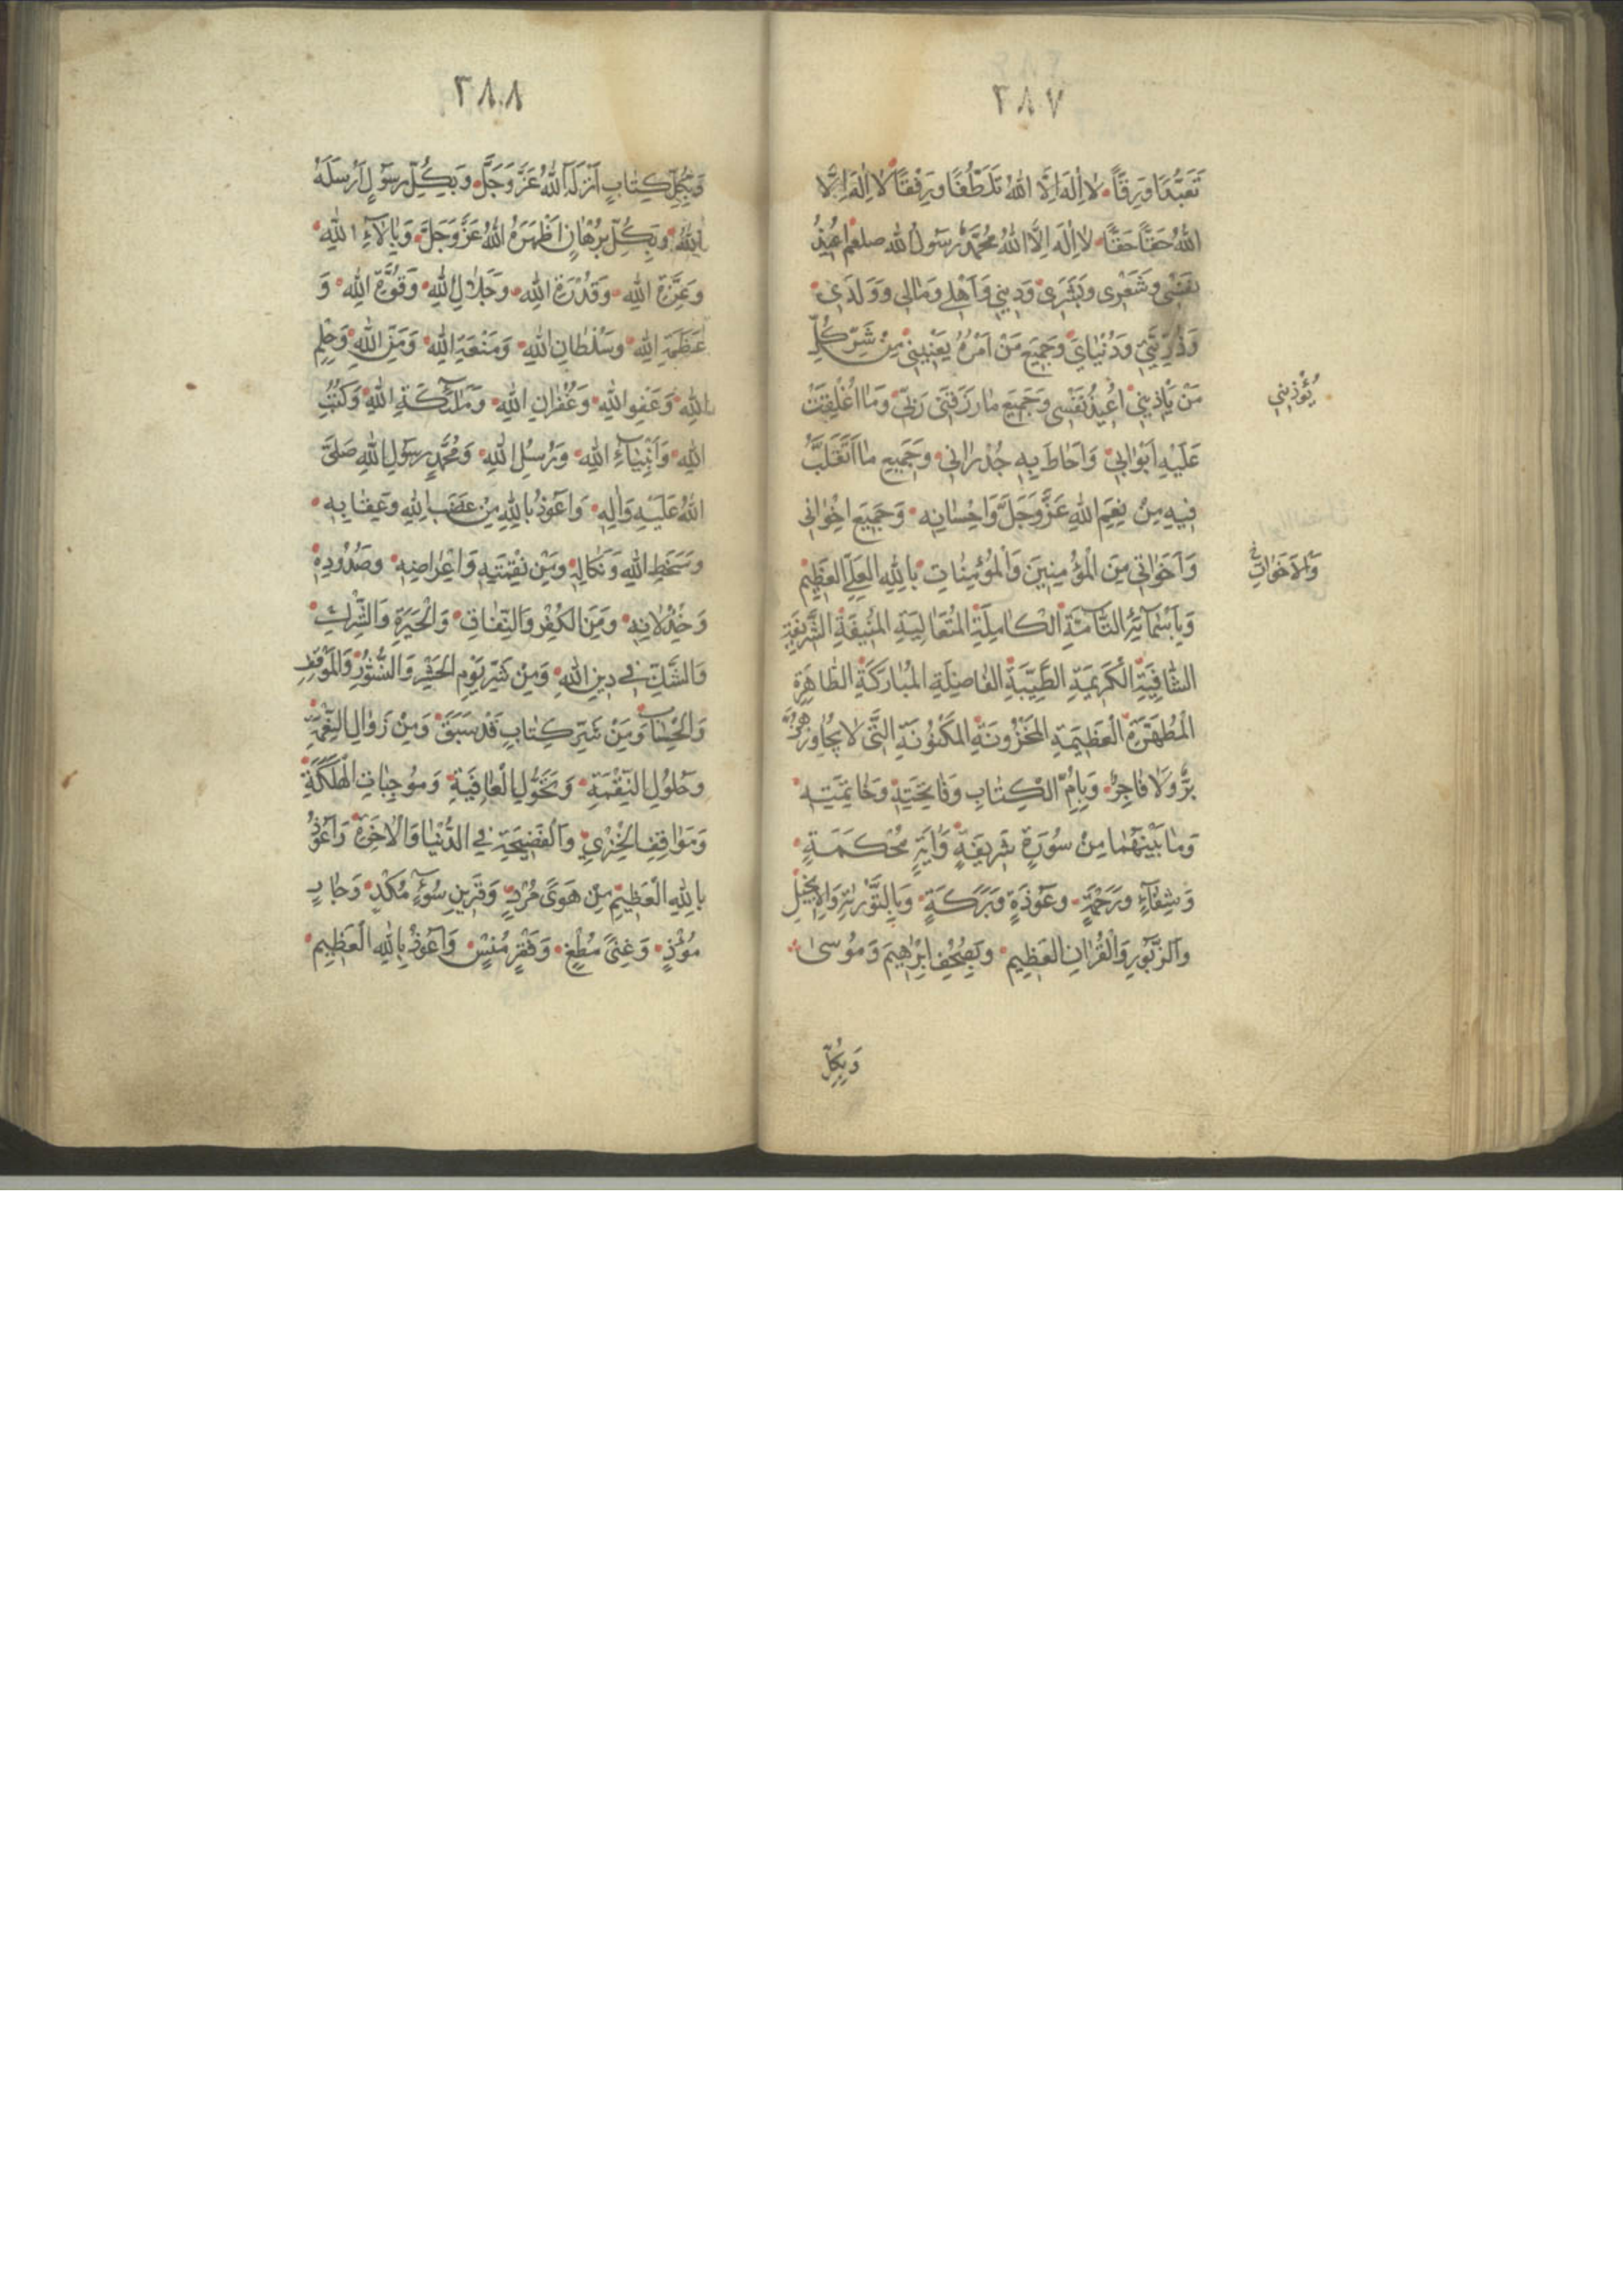 ٣٨٧
تَعَبُّدًا وَرِقًّا لا اِلٰهَ اِلَّا اللهُ تَلَطُّفًا وَرِفْقًا لا اِلٰهَ اِلَّا
اللهُ حَقًّا حَقًّا لا اِلٰهَ اِلَّا اللهُ مُحَمَّدٌ رَسُولُ الله صلعم اُعِيذُ
نَفْسِى وَشَعْرِى وَبَشَرِى وَدِينِى وَاَهْلِى وَمَالِى وَوَلَدِى
وَذُرِّيَّتِى وَدُنْيَاىَ وَجَمِيعَ مَنْ اَمْرُهُ يَعْنِينِى مِنْ شَرِّ كُلِّ
مَنْ يَاْذِينِى اُعِيذُ نَفْسِى وَجَمِيعَ مَا رَزَقَنِى رَبِّى وَمَا اُغْلِقَتْ
يُؤْذِينِى
عَلَيْهِ اَبْوَابِى وَاَحَاطَ بِهِ جُدْرَانِى وَجَمِيعَ مَا اَتَقَلَّبُ
فِيهِ مِنْ نِعَمِ اللهِ عَزَّ وَجَلَّ وَاِحْسَانِهِ وَجَمِيعَ اِخْوَانِى
وَاَخَوَاتِى مِنَ الْمُؤْمِنِينَ وَالْمُؤْمِنَاتِ بِاللهِ الْعَلِىِّ الْعَظِيمِ
وَبِاَسْمَائِهِ التَّامَّةِ الْكَامِلَةِ الْمُتَعَالِيَةِ الْمُنِيفَةِ الشَّرِيفَةِ
الشَّافِيَةِ الْكَرِيمَةِ الطَّيِّبَةِ الْفَاضِلَةِ الْمُبَارَكَةِ الطَّاهِرَةِ
الْمُطَهَّرَةِ الْعَظِيمَةِ الْمَخْزُونَةِ الْمَكْنُونَةِ الَّتِى لا يُجَاوِزُهُنَّ
بَرٌّ وَلَا فَاجِرٌ وَبِاُمِّ الْكِتَابِ وَفَاتِحَتِهِ وَخَاتِمَتِهِ
وَمَا بَيْنَهُمَا مِنْ سُورَةٍ شَرِيفَةٍ وَاٰيَةٍ مُحْكَمَةٍ
وَشِفَاءٍ وَرَحْمَةٍ وَعَوْذَةٍ وَبَرَكَةٍ وَبِالتَّوْرٰيةِ وَالْاِنْجِيلِ
وَالزَّبُورِ وَالْقُرْاٰنِ الْعَظِيمِ وَبِصُحُفِ اِبْرٰهِيمَ وَمُوسىٰ
وَبِكُلِّ
٣٨٨
وَبِكُلِّ كِتَابٍ اَنْزَلَهُ اللهُ عَزَّ وَجَلَّ وَبِكُلِّ رَسُولٍ اَرْسَلَهُ
اللهُ وَبِكُلِّ بُرْهَانٍ اَظْهَرَهُ اللهُ عَزَّ وَجَلَّ وَبِاٰلَاءِ اللهِ
وَعِزَّةِ اللهِ وَقُدْرَةِ اللهِ وَجَلَالِ اللهِ وَقُوَّةِ اللهِ وَ
عَظَمَةِ اللهِ وَسُلْطَانِ اللهِ وَمَنْعَةِ اللهِ وَمَنِّ اللهِ وَحِلْمِ
اللهِ وَعَفْوِ اللهِ وَغُفْرَانِ اللهِ وَمَلٰئِكَةِ اللهِ وَكُتُبِ
اللهِ وَاَنْبِيَاءِ اللهِ وَرُسُلِ اللهِ وَمُحَمَّدٍ رَسُولِ اللهِ صَلَّى
اللهُ عَلَيْهِ وَاٰلِهِ وَاَعُوذُ بِاللهِ مِنْ غَضَبِ اللهِ وَعِقَابِهِ
وَسَخَطِ اللهِ وَنَكَالِهِ وَمِنْ نِقْمَتِهِ وَاِعْرَاضِهِ وَصُدُودِهِ
وَخِذْلَانِهِ وَمِنَ الْكُفْرِ وَالنِّفَاقِ وَالْحَيْرَةِ وَالشِّرْكِ
وَالشَّكِّ فِى دِينِ اللهِ وَمِنْ شَرِّ يَوْمِ الْحَشْرِ وَالنُّشُورِ وَالْمَوْقِفِ
وَالْحِسَابِ وَمِنْ شَرِّ كِتَابٍ قَدْ سَبَقَ وَمِنْ زَوَالِ النِّعْمَةِ
وَحُلُولِ النِّقْمَةِ وَتَحَوُّلِ الْعَافِيَةِ وَمُوجِبَاتِ الْهَلَكَةِ
وَمَوَاقِفِ الْخِزْىِ وَالْفَضِيحَةِ فِى الدُّنْيَا وَالْاٰخِرَةِ وَاَعُوذُ
بِاللهِ الْعَظِيمِ مِنْ هَوًى مُرْدٍ وَقَرِينِ سُوءٍ مُكْدٍ وَجَارٍ
مُؤْذٍ وَغِنًى مُطْغٍ وَفَقْرٍ مُنْسٍ وَاَعُوذُ بِاللهِ الْعَظِيمِ